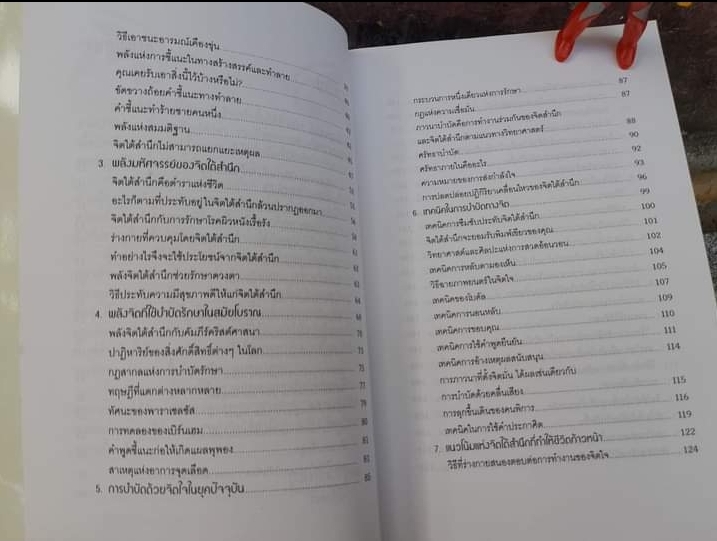 วิธีเอาชนะอารมณ์เคืองขุ่น
พลังแห่งการชี้แนะในทางสร้างสรรค์และทำลาย
คุณเคยรับเอาสิ่งนี้ไว้บ้างหรือไม่?
ขัดขวางถ้อยคำชี้แนะทางทำลาย
คำชี้แนะทำร้ายชายคนหนึ่ง
พลังแห่งสมมติฐาน
จิตใต้สำนึกไม่สามารถแยกแยะเหตุผล
3. พลังมหัศจรรย์ของจิตใต้สำนึก
จิตใต้สำนึกคือตำราแห่งชีวิต
อะไรก็ตามที่ประทับอยู่ในจิตใต้สำนึกล้วนปรากฏออกมา
จิตใต้สำนึกกับการรักษาโรคผิวหนังเรื้อรัง
ร่างกายที่ควบคุมโดยจิตใต้สำนึก
ทำอย่างไรจึงจะใช้ประโยชน์จากจิตใต้สำนึก
พลังจิตใต้สำนึกช่วยรักษาดวงตา
วิธีประทับความมีสุขภาพดีให้แก่จิตใต้สำนึก
4. พลังจิตที่ใช้บำบัดรักษาในสมัยโบราณ
พลังจิตใต้สำนึกกับคัมภีร์คริสต์ศาสนา 70
ปาฏิหาริย์ของสิ่งศักดิ์สิทธิ์ต่างๆ ในโลก
กฎสากลแห่งการบำบัดรักษา 75
ทฤษฎีที่แตกต่างหลากหลาย 77
ทัศนะของพาราเซลซัส 79
การทดลองของเบิร์นเฮม 80
คำพูดชี้แนะก่อให้เกิดแผลพุพอง 81
สาเหตุแห่งอาการจุดเลือด 81
5. การบำบัดด้วยจิตใจในยุคปัจจุบัน 85
กระบวนการหนึ่งเดียวแห่งการรักษา 87
กฎแห่งความเชื่อมั่น 87
ภาวนาบำบัดคือการทำงานร่วมกันของจิตสำนึก
และจิตใต้สำนึกตามแนวทางวิทยาศาสตร์ 88
ศรัทธาบำบัด 90
ศรัทธาภายในคืออะไร 92
ความหมายของการส่งกำลังใจ 93
การปลดปล่อยปฏิกิริยาเคลื่อนไหวของจิตใต้สำนึก 96
6. เทคนิคในการบำบัดทางจิต 99
เทคนิคการซึมซับประทับจิตใต้สำนึก 100
จิตใต้สำนึกจะยอมรับพิมพ์เขียวของคุณ 101
วิทยาศาสตร์และศิลปะแห่งการสวดอ้อนวอน 102
เทคนิคการหลับตามองเห็น 104
วิธีฉายภาพยนตร์ในจิตใจ 105
เทคนิคของโบดัล 107
เทคนิคการนอนหลับ 109
เทคนิคการขอบคุณ 110
เทคนิคการใช้คำพูดยืนยัน 111
เทคนิคการอ้างเหตุผลสนับสนุน 114
การภาวนาที่ตั้งจิตมั่น ได้ผลเช่นเดียวกับ
การบำบัดด้วยคลื่นเสียง 115
การลุกขึ้นเดินของคนพิการ 116
เทคนิคในการใช้คำประกาศิต 119
7. แนวโน้มแห่งจิตใต้สำนึกที่ทำให้ชีวิตก้าวหน้า 122
วิธีที่ร่างกายสนองตอบต่อการทำงานของจิตใจ 124